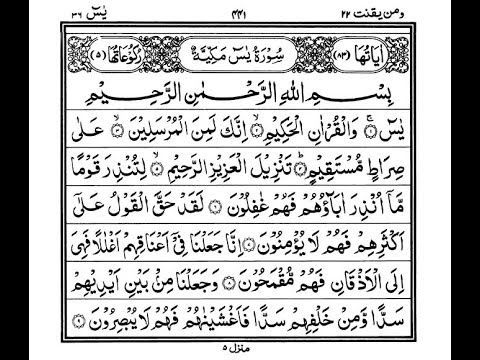 ومن يقنت ٢٢ ٤٤١ يٰسٓ ٣٦
اٰيَاتُهَا (٨٣) سُوْرَةُ يٰسٓ مَكِّيَّةٌ رُكُوْعَاتُهَا (٥)
بِسْمِ اللّٰهِ الرَّحْمٰنِ الرَّحِيْمِ
يٰسٓ ۝١ وَالْقُرْاٰنِ الْحَكِيْمِ ۝٢ اِنَّكَ لَمِنَ الْمُرْسَلِيْنَ ۝٣ عَلٰى
صِرَاطٍ مُّسْتَقِيْمٍ ۝٤ تَنْزِيْلَ الْعَزِيْزِ الرَّحِيْمِ ۝٥ لِتُنْذِرَ قَوْمًا
مَّاۤ اُنْذِرَ اٰبَآؤُهُمْ فَهُمْ غٰفِلُوْنَ ۝٦ لَقَدْ حَقَّ الْقَوْلُ عَلٰۤى
اَكْثَرِهِمْ فَهُمْ لَا يُؤْمِنُوْنَ ۝٧ اِنَّا جَعَلْنَا فِيْۤ اَعْنَاقِهِمْ اَغْلٰلًا فَهِيَ
اِلَى الْاَذْقَانِ فَهُمْ مُّقْمَحُوْنَ ۝٨ وَجَعَلْنَا مِنْۢ بَيْنِ اَيْدِيْهِمْ
سَدًّا وَّمِنْ خَلْفِهِمْ سَدًّا فَاَغْشَيْنٰهُمْ فَهُمْ لَا يُبْصِرُوْنَ ۝٩
منزل ٥